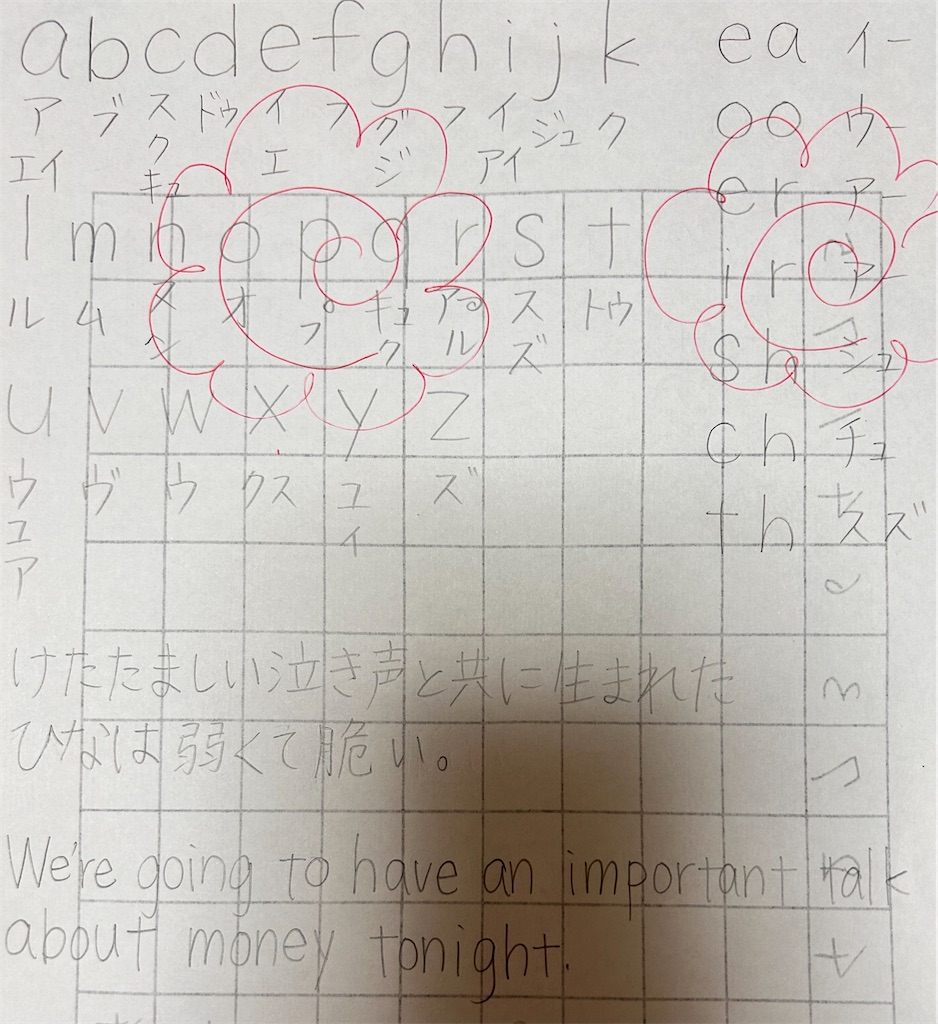 abcdefghijk ea イー
ア ブ ス ドゥ イ フ グ フ イ ジュ ク oo ウー
エイ ク キュ エ ジ アイ er アー
lmnopqrst ir アー
ル ム ヌ オ プ キュ ア ス トゥ
ン ク ル ズ sh シュ
uvwxyz ch チュ
ウ ヴ ウ クス ユ ズ th ス ズ
ユ イ
ア
けたたましい泣き声と共に生まれた
ひなは弱くて脆い。
We're going to have an important talk
about money tonight.